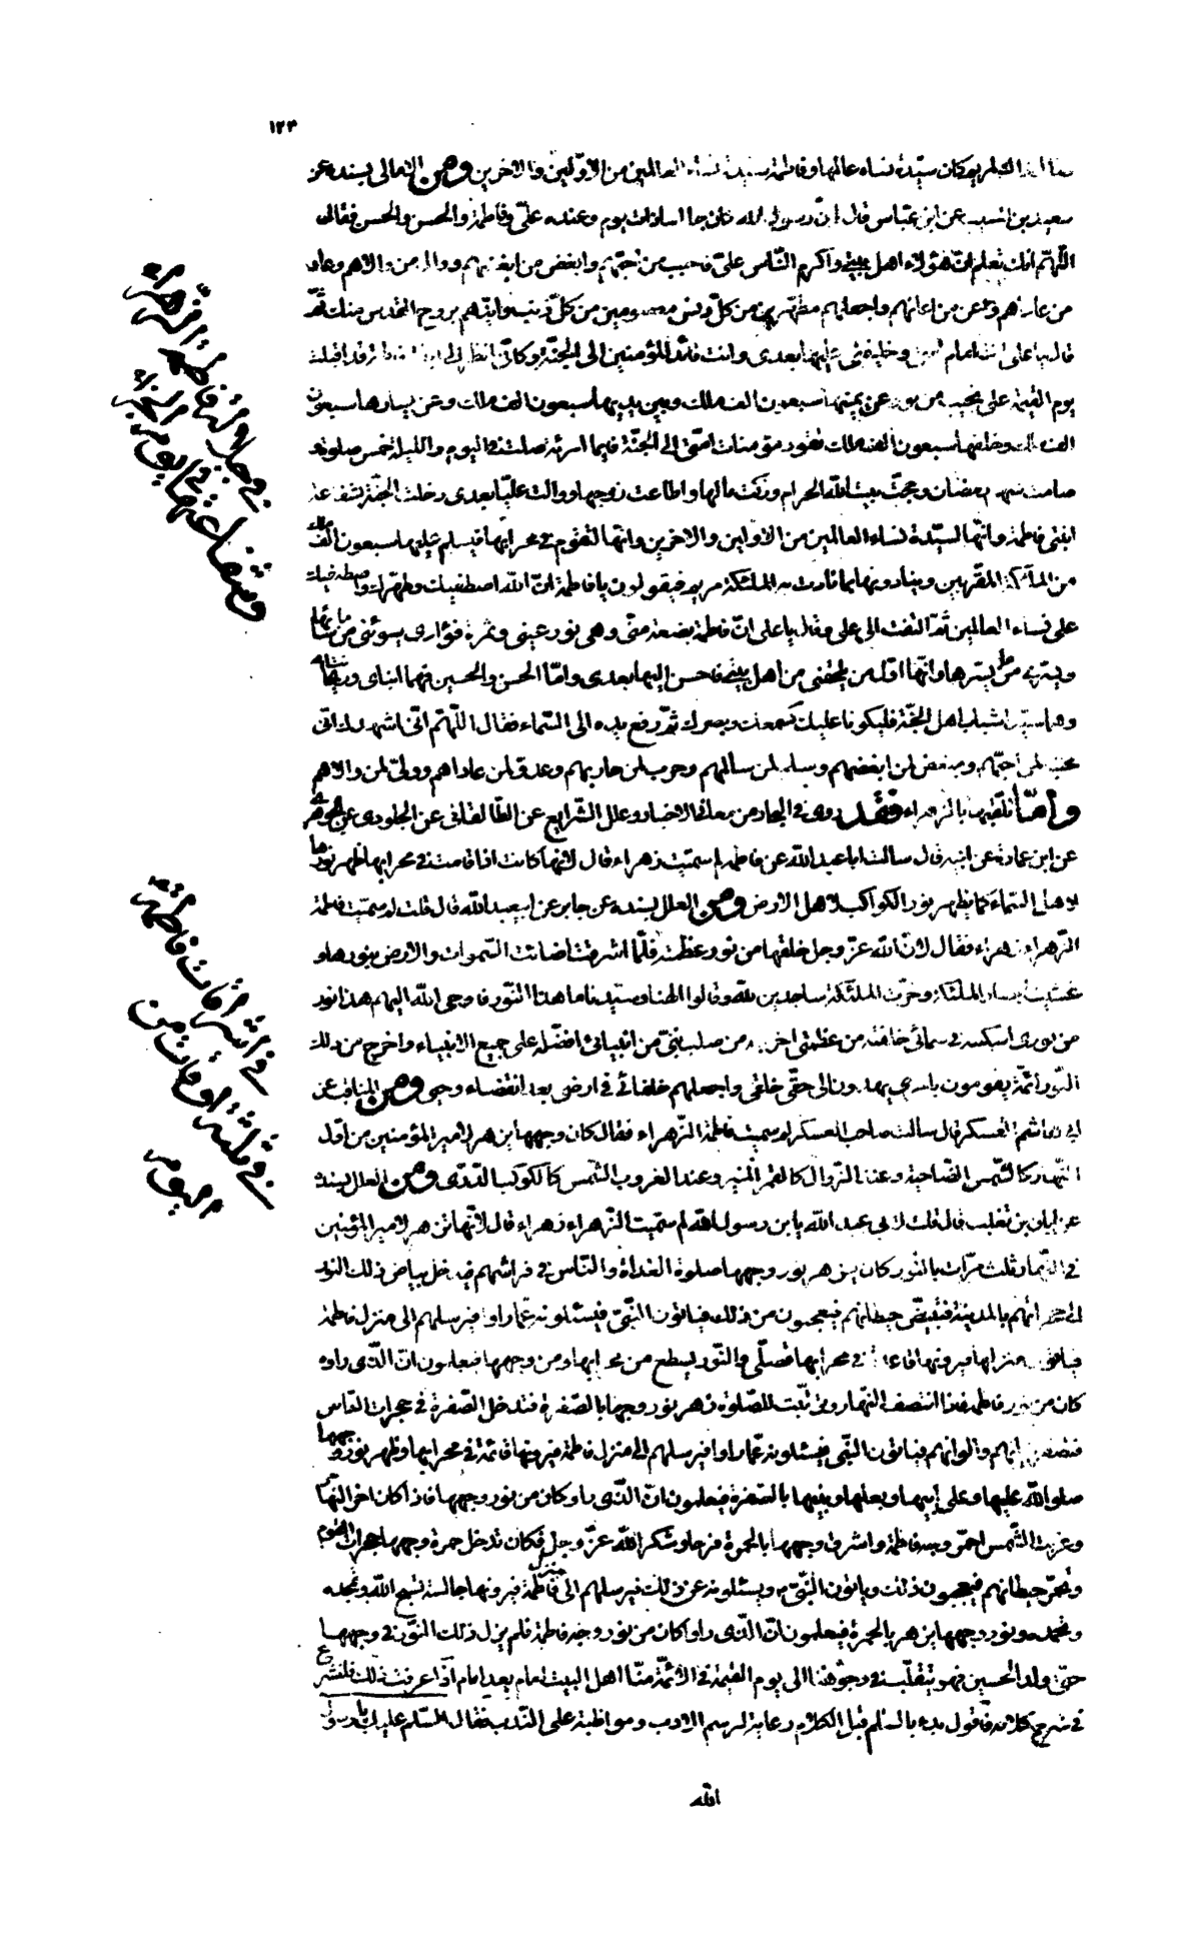 ١٢٣
كان سيّدة نساء عالمها وفاطمة سيّدة نساء العالمين من الاوّلين والاخرين ومن الامالى بسنده عن
سعيد بن المسيب عن ابن عبّاس قال انّ رسول الله كان جالسا ذات يوم وعنده علىّ وفاطمة والحسن والحسين فقال
اللّهمّ انك تعلم انّ هؤلاء اهل بيتى واكرم النّاس علىّ فاحبب من احبّهم وابغض من ابغضهم ووال من والاهم وعاد
من عاداهم واعن من اعانهم واجعلهم مطهّرين من كلّ رجس معصومين من كلّ ذنب وايّدهم بروح القدس منك ثمّ
قال يا على انت امام امتى وخليفتى عليها بعدى وانت قائد المؤمنين الى الجنّة وكانّى انظر الى ابنتى فاطمة قد اقبلت
يوم القيمة على نجيب من نور عن يمينها سبعون الف ملك وبين يديها سبعون الف ملك وعن يسارها سبعون
الف ملك وخلفها سبعون الف ملك تقود مؤمنات امّتى الى الجنّة فايما امرئة صلت فى اليوم والليلة خمس صلوات
صامت شهر رمضان وحجّت بيت الله الحرام وزكت مالها واطاعت زوجها ووالت عليّا بعدى دخلت الجنّة بشفاعة
ابنتى فاطمة وانّها لسيّدة نساء العالمين من الاوّلين والاخرين وانّها لتقوم فى محرابها فيسلم عليها سبعون الف ملك
من الملائكة المقربين وينادونها بما نادت به الملئكة مريم فيقولون يا فاطمة انّ الله اصطفيك وطهّرك واصطفيك
على نساء العالمين ثمّ التفت الى على فقال يا على انّ فاطمة بضعة منّى وهى نور عينى وثمرة فؤادى يسوئنى ما سائها
ويسرّنى ما يسرّها وانّها اوّل من يلحقنى من اهل بيتى فاحسن اليها بعدى وامّا الحسن والحسين فهما ابناى وريحانتاى
وهما سيّدا شباب اهل الجنّة فليكونا عليك كسمعك وبصرك ثمّ رفع يده الى السّماء فقال اللّهمّ انّى اشهدك انّى
محبّ لمن احبّهم ومبغض لمن ابغضهم وسلم لمن سالمهم وحرب لمن حاربهم وعدوّ لمن عاداهم وولىّ لمن والاهم
وامّا تلقّبها بالزهراء فقد روى فى البحار من معانى الاخبار وعلل الشّرايع عن الطّالقانى عن الجلودى عن الجوهرى
عن ابن عمارة عن ابيه قال سالت ابا عبد الله عن فاطمة لم سمّيت زهراء قال لانّها كانت اذا قامت فى محرابها ظهر نورها
لاهل السّماء كما يظهر نور الكواكب لاهل الارض ومن العلل بسنده عن جابر عن ابيعبد الله قال قلت لم سمّيت فاطمة
الزّهراء زهراء فقال لانّ الله عزّ وجلّ خلقها من نور عظمته فلمّا اشرقت اضائت السّموات والارض بنورها و
غشيت ابصار الملئكة وخرّت الملئكة ساجدين لله وقالوا الهنا وسيّدنا ما هذا النّور فاوحى الله اليهم هذا نور
من نورى اسكنته فى سمائى خلقته من عظمتى اخرجه من صلب نبىّ من انبيائى افضّله على جميع الانبياء واخرج من ذلك
النّور ائمّة يقومون بامرى يهدون الى حقّى خلقى واجعلهم خلفائى فى ارضى بعد انقضاء وحيى ومن المناقب عن
ابى هاشم العسكرى قال سالت صاحب العسكر لم سميت فاطمة الزّهراء فقال كان وجهها يزهر لامير المؤمنين من اوّل
النّهار كالشّمس الضّاحية وعند الزّوال كالقمر المنير وعند الغروب الشّمس كالكوكب الدّرّى ومن العلل بسنده
عن ابان بن تغلب قال قلت لابى عبد الله يا ابن رسول الله لم سمّيت الزّهراء زهراء قال لانّها تزهر لامير المؤمنين
فى النّهار ثلث مرّات بالنّور كان يزهر نور وجهها صلوة الغداة والنّاس فى فراشهم فيدخل بياض ذلك النور
الى حجراتهم بالمدينة فتبيضّ حيطانهم فيعجبون من ذلك فياتون النّبىّ فيسئلونه عمّا راوا فيرسلهم الى منزل فاطمة
فياتون منزلها فيرونها قاعدة فى محرابها تصلّى والنّور يسطع من محرابها ومن وجهها فيعلمون انّ الّذى راوه
كان من نور فاطمة فاذا انتصف النّهار وترتّبت للصّلوة زهر نور وجهها بالصّفرة فتدخل الصّفرة فى حجرات النّاس
فتصفر ثيابهم والوانهم فياتون النّبى فيسئلونه عمّا راوا فيرسلهم الى منزل فاطمة فيرونها قائمة فى محرابها وظهر نور وجهها
صلوات الله عليها وعلى ابيها وبعلها وبنيها بالصّفرة فيعلمون انّ الّذى راوا كان من نور وجهها فاذا كان اخر النّهار
وغربت الشّمس احمرّ وجه فاطمة واشرق وجهها بالحمرة فرحا وشكر الله عزّ وجلّ فكان تدخل حمرة وجهها حجرات القوم
وتحمرّ حيطانهم فيعجبون من ذلك وياتون النّبىّ ويسئلونه عن ذلك فيرسلهم الى منزل فاطمة فيرونها جالسة تسبّح الله وتمجّده
وتحمده ونور وجهها يزهر بالحمرة فيعلمون انّ الّذى راوا كان من نور وجه فاطمة فلم يزل ذلك النّور فى وجهها
حتّى ولد الحسين فهو يتقلّب فى وجوهنا الى يوم القيمة فى الائمّة منّا اهل البيت امام بعد امام اذا عرفت ذلك فلنشرع
فى شرح كلامه فاقول بدء بالسّلم قبل الكلام رعاية لرسم الادب ومواظبة على النّدب فقال السّلم عليك يا رسول
الله
فى جلالة فاطمة الزّهراء
وشفاعتها فى يوم الجزاء
فى اشراقات فاطمة
فى ثلثة اوقات من
اليوم